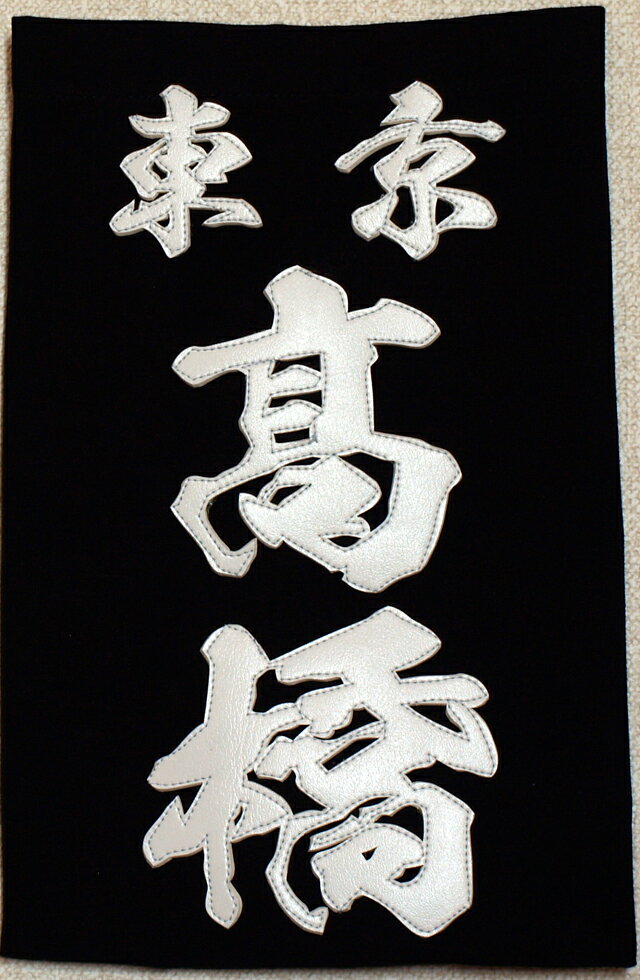 東京
髙
橋